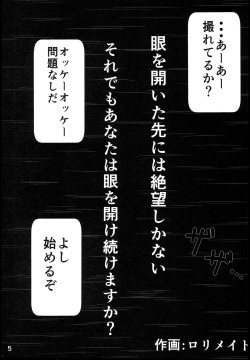 …あーあー
撮れてるか？
眼を開いた先には絶望しかない
それでもあなたは眼を開け続けますか？
オッケーオッケー
問題なしだ
よし
始めるぞ
ザザ…
作画:ロリメイト
5